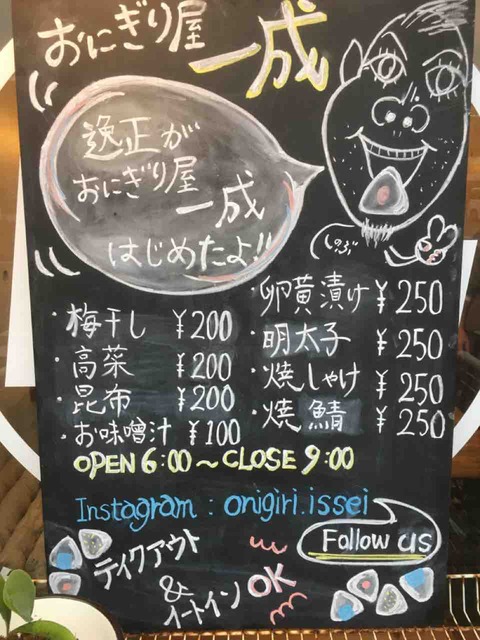 おにぎり屋
一成
逸正が
おにぎり屋
一成
はじめたよ!!
しのぶ
・梅干し ¥200
・高菜 ¥200
・昆布 ¥200
・お味噌汁 ¥100
・卵黄漬け ¥250
・明太子 ¥250
・焼しゃけ ¥250
・焼鯖 ¥250
OPEN 6:00 ～ CLOSE 9:00
Instagram : onigiri.issei
Follow us
テイクアウト
&
イートイン OK